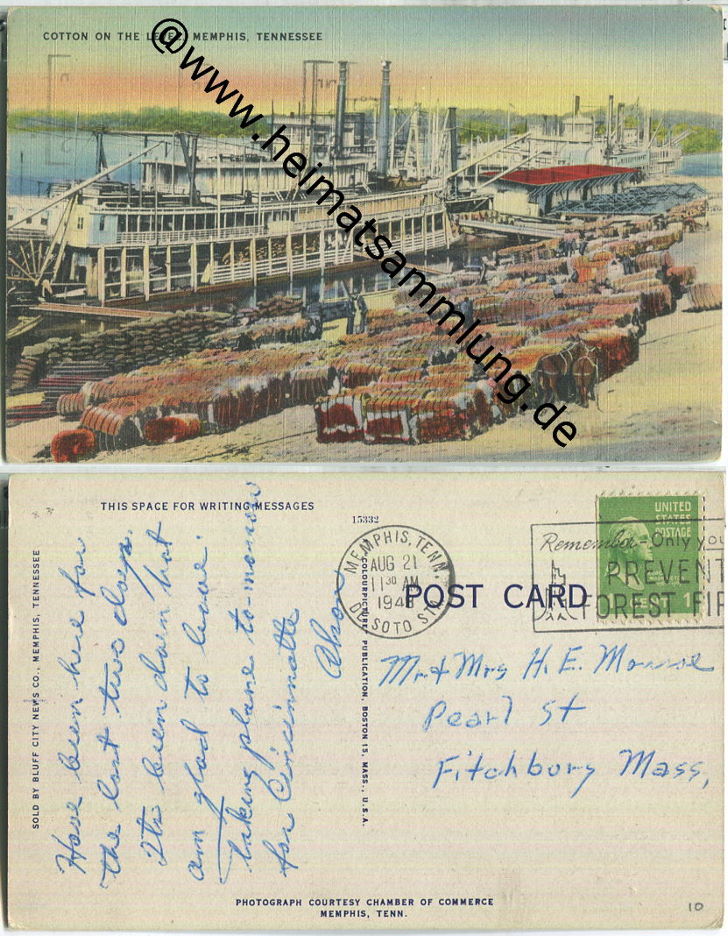 COTTON ON THE LEVEE, MEMPHIS, TENNESSEE
@www.heimatsammlung.de
THIS SPACE FOR WRITING MESSAGES
15332
SOLD BY BLUFF CITY NEWS CO., MEMPHIS, TENNESSEE
Have been here for
the last two days.
Its been darn hot
am glad to leave.
taking plane to-morrow
for Cincinnatte
"COLOURPICTURE" PUBLICATION, BOSTON 15, MASS., U.S.A.
MEMPHIS, TENN.
AUG 21
1 30 AM
194
DE SOTO STA.
UNITED
STATES
POSTAGE
Remember - Only you
PREVENT
FOREST FIR
POST CARD
Mr & Mrs H. E.
Pearl St
Fitchburg Mass,
PHOTOGRAPH COURTESY CHAMBER OF COMMERCE
MEMPHIS, TENN.
10